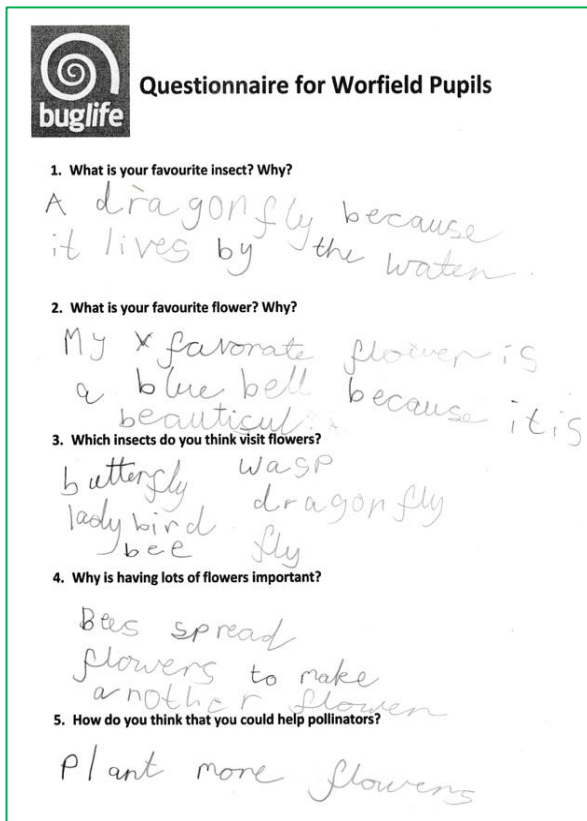 buglife
Questionnaire for Worfield Pupils
1. What is your favourite insect? Why?
A dragonfly because
it lives by the water.
2. What is your favourite flower? Why?
My x favorate flower is
a blue bell because it is
beauticul
3. Which insects do you think visit flowers?
butterfly wasp
ladybird dragonfly
bee fly
4. Why is having lots of flowers important?
Bees spread
flowers to make
another flower
5. How do you think that you could help pollinators?
Plant more flowers